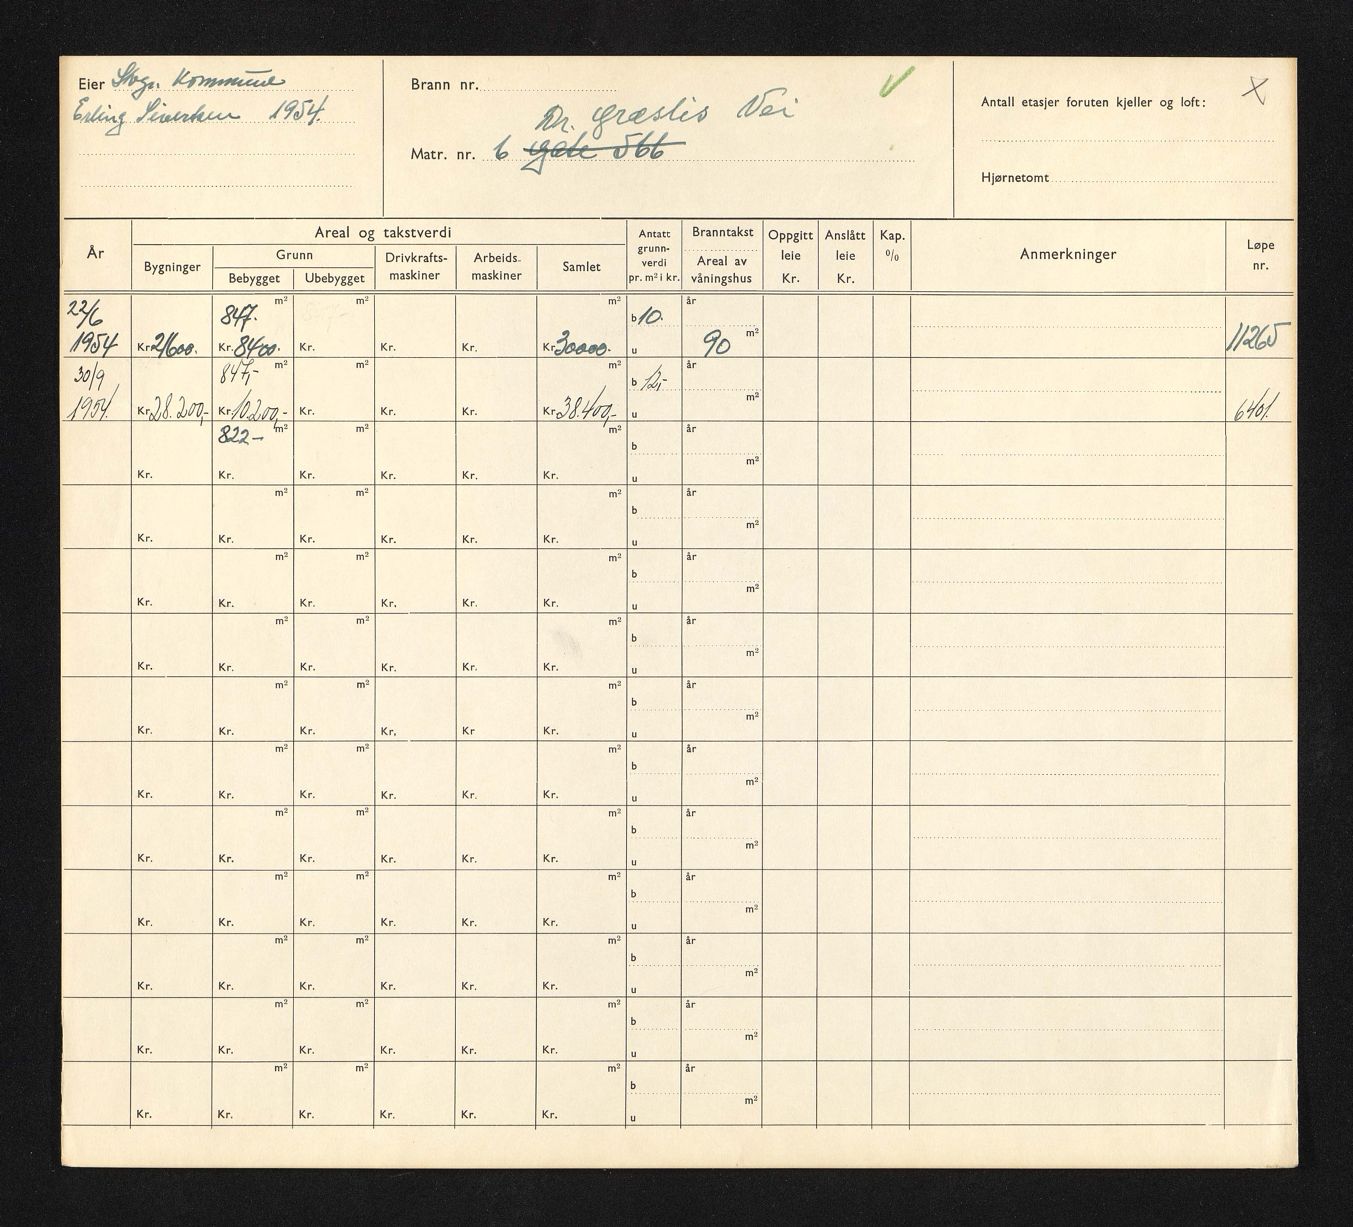 Eier Skgr. Kommune
Erling Siverksen 1954.
Brann nr.
Dr. Græslis Vei
Matr. nr. 6 gate 566
Antall etasjer foruten kjeller og loft:
X
Hjørnetomt
År
Areal og takstverdi
Bygninger
Grunn
Bebygget
Ubebygget
Drivkrafts-
maskiner
Arbeids-
maskiner
Samlet
Antatt
grunn-
verdi
pr. m² i kr.
Branntakst
Areal av
våningshus
Oppgitt
leie
Kr.
Anslått
leie
Kr.
Kap.
%
Anmerkninger
Løpe
nr.
22/6 847. m² m² m² b 10. år
1954 Kr. 21600. Kr. 8400. Kr. Kr. Kr. Kr. 30000. u 90 m² 11265
30/9 847,- m² m² m² b 12,- år
1954. Kr. 28.200,- Kr. 10.200,- Kr. Kr. Kr. Kr. 38.400,- u m² 6401.
822- m² m² m² b år
Kr. Kr. Kr. Kr. Kr. Kr. u m²
m² m² m² b år
Kr. Kr. Kr. Kr. Kr. Kr. u m²
m² m² m² b år
Kr. Kr. Kr. Kr. Kr. Kr. u m²
m² m² m² b år
Kr. Kr. Kr. Kr. Kr. Kr. u m²
m² m² m² b år
Kr. Kr. Kr. Kr. Kr Kr. u m²
m² m² m² b år
Kr. Kr. Kr. Kr. Kr. Kr. u m²
m² m² m² b år
Kr. Kr. Kr. Kr. Kr. Kr. u m²
m² m² m² b år
Kr. Kr. Kr. Kr. Kr. Kr. u m²
m² m² m² b år
Kr. Kr. Kr. Kr. Kr. Kr. u m²
m² m² m² b år
Kr. Kr. Kr. Kr. Kr. Kr. u m²
m² m² m² b år
Kr. Kr. Kr. Kr. Kr. Kr. u m²